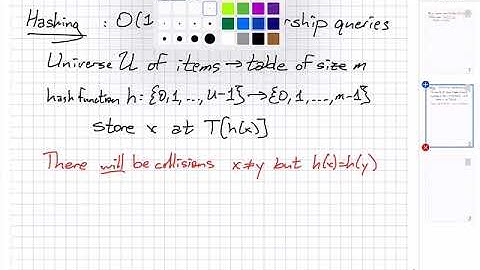 Hashing : O(1 ership queries
Universe U of items → table of size m
hash function h = {0,1,..,u-1} → {0,1,...,m-1}
store x at T[h(x)]
There will be collisions x≠y but h(x)=h(y)